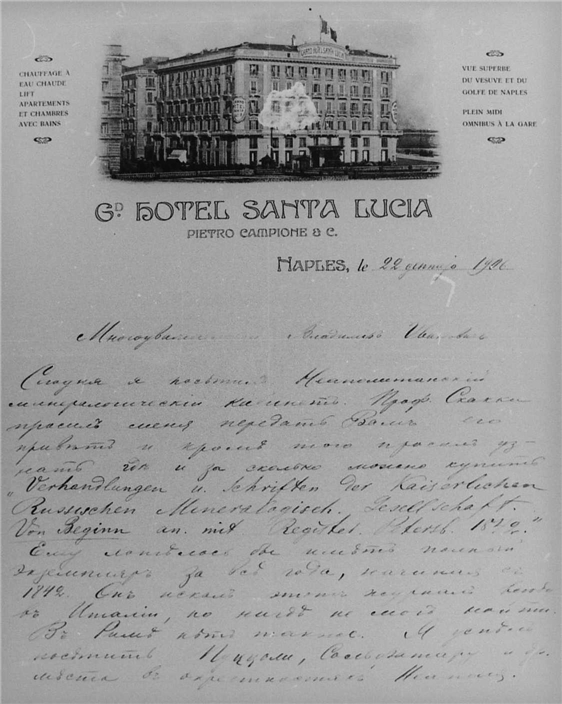 CHAUFFAGE À
EAU CHAUDE
LIFT
APARTEMENTS
ET CHAMBRES
AVEC BAINS
GRAND HOTEL SANTA LUCIA
VUE SUPERBE
DU VESUVE ET DU
GOLFE DE NAPLES
PLEIN MIDI
OMNIBUS À LA GARE
GD. HOTEL SANTA LUCIA
PIETRO CAMPIONE & C.
NAPLES, le 22 190
Многоуважаемый Владимиръ Ивановичъ
я посѣтилъ Неаполитанскій
минералогическій кабинетъ. Проф. Скакки
просилъ меня передать Вамъ его
привѣтъ и кромѣ того просилъ уз-
нать гдѣ и за сколько можно купить
„Verhandlungen u. Schriften der Kaiserlichen
Russischen Mineralogisch. Gesellschaft.
Von Beginn an. mit Register. Petersb. 1842."
Ему хотѣлось бы имѣть полный
экземпляръ за всѣ года, начиная съ
1842. Онъ искалъ этотъ журналъ
въ Италіи, но нигдѣ не могъ найти.
Въ Римѣ нѣтъ также. Я успѣлъ
посѣтить Пуццоли, Сольфатару и др.
мѣста въ окрестностяхъ Неаполя.